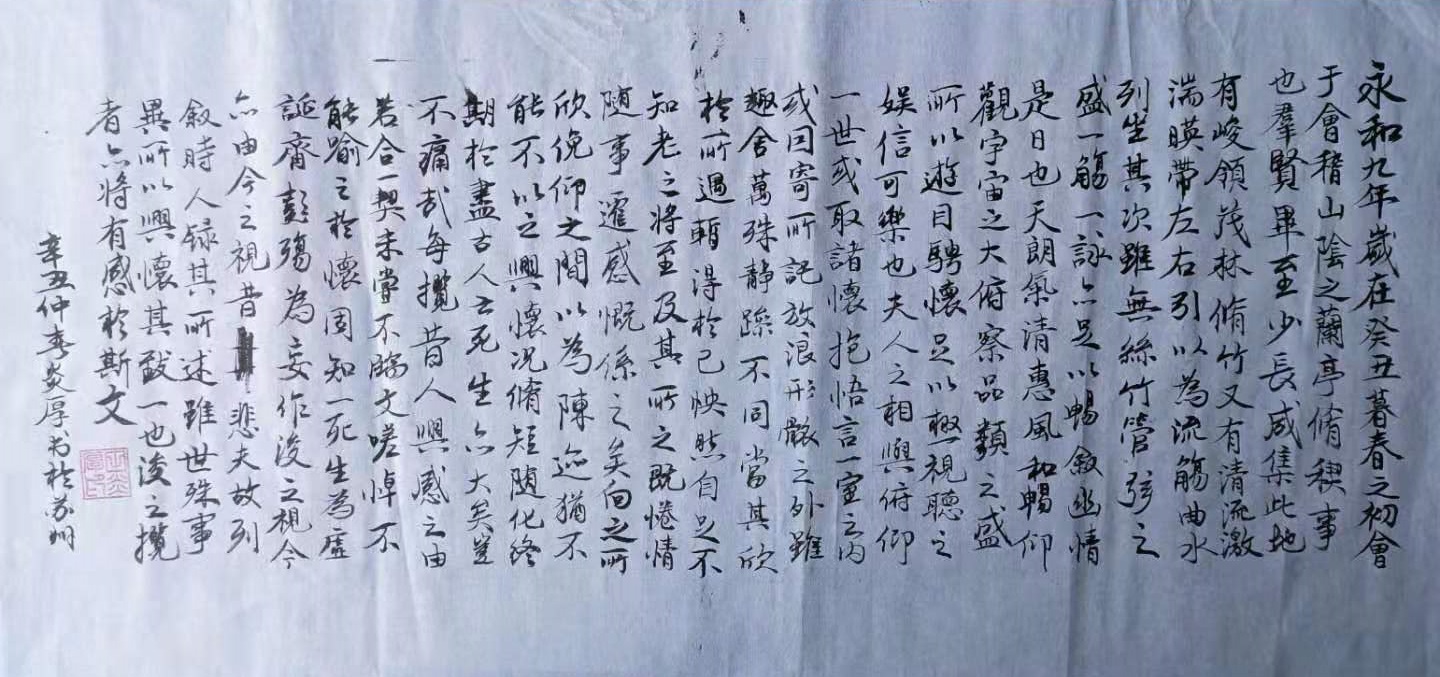 永和九年歲在癸丑暮春之初會
于會稽山陰之蘭亭脩稧事
也羣賢畢至少長咸集此地
有峻領茂林脩竹又有清流激
湍暎帶左右引以為流觴曲水
列坐其次雖無絲竹管弦之
盛一觴一詠亦足以暢敘幽情
是日也天朗氣清惠風和暢仰
觀宇宙之大俯察品類之盛
所以遊目騁懷足以極視聽之
娛信可樂也夫人之相與俯仰
一世或取諸懷抱悟言一室之內
或因寄所託放浪形骸之外雖
趣舍萬殊靜躁不同當其欣
於所遇暫得於己怏然自足不
知老之將至及其所之既惓情
隨事遷感慨係之矣向之所
欣俛仰之間以為陳迹猶不
能不以之興懷況脩短隨化終
期於盡古人云死生亦大矣豈
不痛哉每攬昔人興感之由
若合一契未嘗不臨文嗟悼不
能喻之於懷固知一死生為虛
誕齊彭殤為妄作後之視今
亦由今之視昔悲夫故列
敘時人錄其所述雖世殊事
異所以興懷其致一也後之攬
者亦將有感於斯文
辛丑仲春炎厚书於苏州